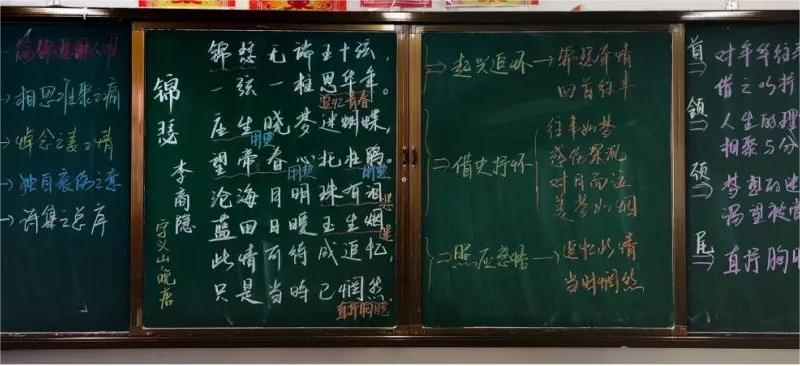 →相思难聚之痛
→悼念亡妻之情
→独自哀伤之意
→诗集之总序
锦瑟
李商隐
字义山晚唐
锦瑟无端五十弦,
一弦一柱思华年。
追忆青春
庄生晓梦迷蝴蝶,
用典
望帝春心托杜鹃。
用典
沧海月明珠有泪,
蓝田日暖玉生烟。
此情可待成追忆,
只是当时已惘然。
直抒胸臆
⇒起兴追怀→
回首往年
⇒借史抒怀
往事如梦
对月而泣
美梦如烟
⇒照应
→追忆此情
当时惘然
首⇒对年华往
借之以抒
颔⇒人生的理
相聚与分
颈⇒梦想的迷
渴望被
尾⇒直抒胸